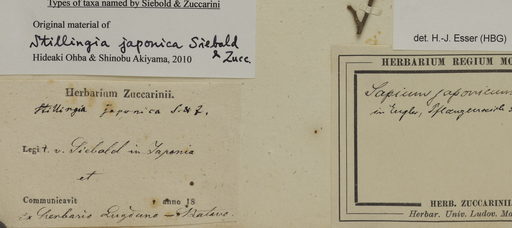 Types of taxa named by Siebold & Zuccarini
Original material of
Stillingia japonica Siebold
& Zucc.
Hideaki Ohba & Shinobu Akiyama, 2010
det. H.-J. Esser (HBG)
Herbarium Zuccarinii.
Stillingia japonica S. & Z.
Legit. v. Siebold in Japonia
et
Communicavit anno 18
Ex herbario Lugduno-Batavo.
HERBARIUM REGIUM MO
Sapium japonicum
in Engler, Pflanzenreich
HERB. ZUCCARINII
Herbar. Univ. Ludov. Mo